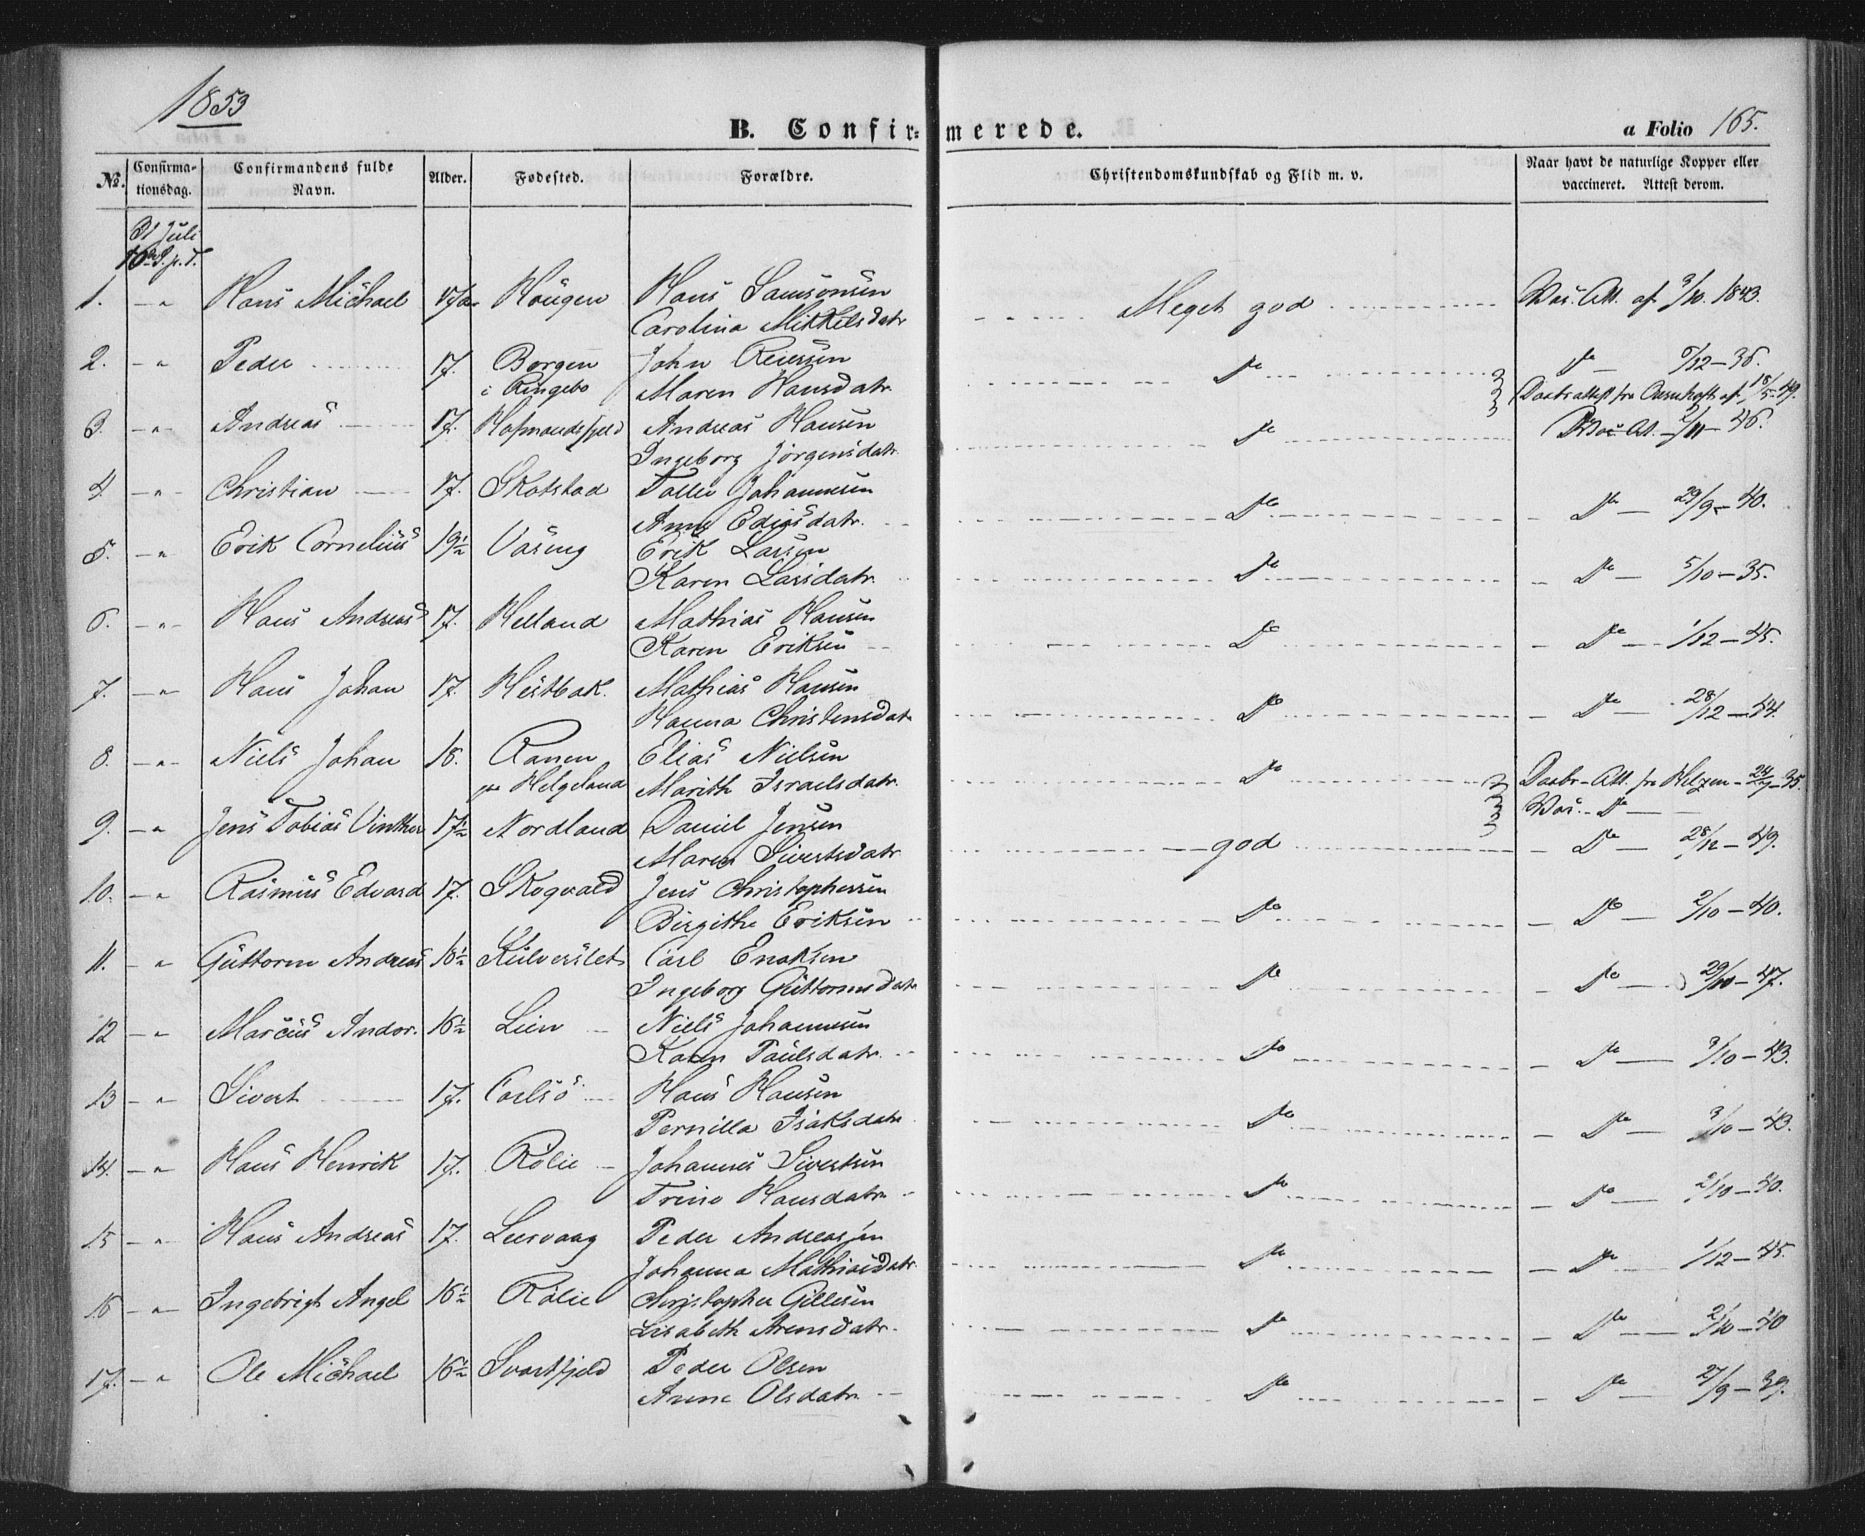 1853
B. Confirmerede.
a Folio 165.
No. Confirmationsdag. Confirmandens fulde Navn. Alder. Fødested. Forældre. Christendomskundskab og Flid m. v. Naar havt de naturlige Kopper eller vaccineret. Attest derom.
31 Juli
10 S. p. T.
1. -"- Hans Michael Haugen Hans Samsonsen Meget god Vac. Att. af 3/10 1843.
Carolina Mikkelsdatr
2. -"- Peder 17. Borgen John Reiersen Do Do 5/12-36.
i Ringebo Maren Hansdatr. Daabsattest fra 18/5-49.
3. -"- Andreas 17. Andreas Hansen Do Vac. At. 2/11-46.
Ingeborg Jörgensdatr.
4. -"- Christian 17. Skotstad Toller Johannesen Do Do 29/9-40.
Anne datr.
5. -"- Erik Cornelius 19½ Vaseng Erik Larsen Do Do 5/10-35.
Karen Larsdatr.
6. -"- Hans Andreas 17. Helland Mathias Hansen Do Do 1/12-45.
Karen Eriksen
7. -"- Hans Johan 17. Hestbak. Mathias Hansen Do Do 28/12-44.
Hanna Christensdatr
8. -"- Niels Johan 18. Ranen Elias Nielsen Do Daabs-Att. fra 35.
paa Helgeland Marith Israelsdatr. Vac. - Do
9. -"- Jens Tobias Vinther 17½ Nordland Daniel Jensen god Do 28/12-49.
Maren Sivertsdatr
10. -"- Rasmus Edvard 17. Skogvald Jens Christophersen Do Do 2/10-40.
Birgithe Eriksen
11. -"- Guttorm Andreas 16½ Kulverslet Carl Enoksen Do Do 29/10-47.
Ingeborg Guttormsdatr
12 -"- Marcus Andor. 16½ Lien Niels Johannesen Do Do 3/10-43.
Karen Paulsdatr.
13 -"- Sivert 17. Carlsö Hans Hansen Do Do 3/10-43.
Pernilla Isaksdatr.
14. -"- Hans Henrik 17. Rölie Johannes Sivertsen Do Do 2/10-40.
Trine Hansdatr
15 -"- Hans Andreas 17. Leervaag Peder Andreassen Do Do 1/12-45.
Johanna Mathiasdatr
16 -"- Ingebrigt Angel 16½ Rölie Christopher Gillesen Do Do 2/10-40
Lisabeth Arensdatr.
17. -"- Ole Michael 16½ Svartfjeld Peder Olsen Do Do 27/9-39.
Anne Olsdatr.